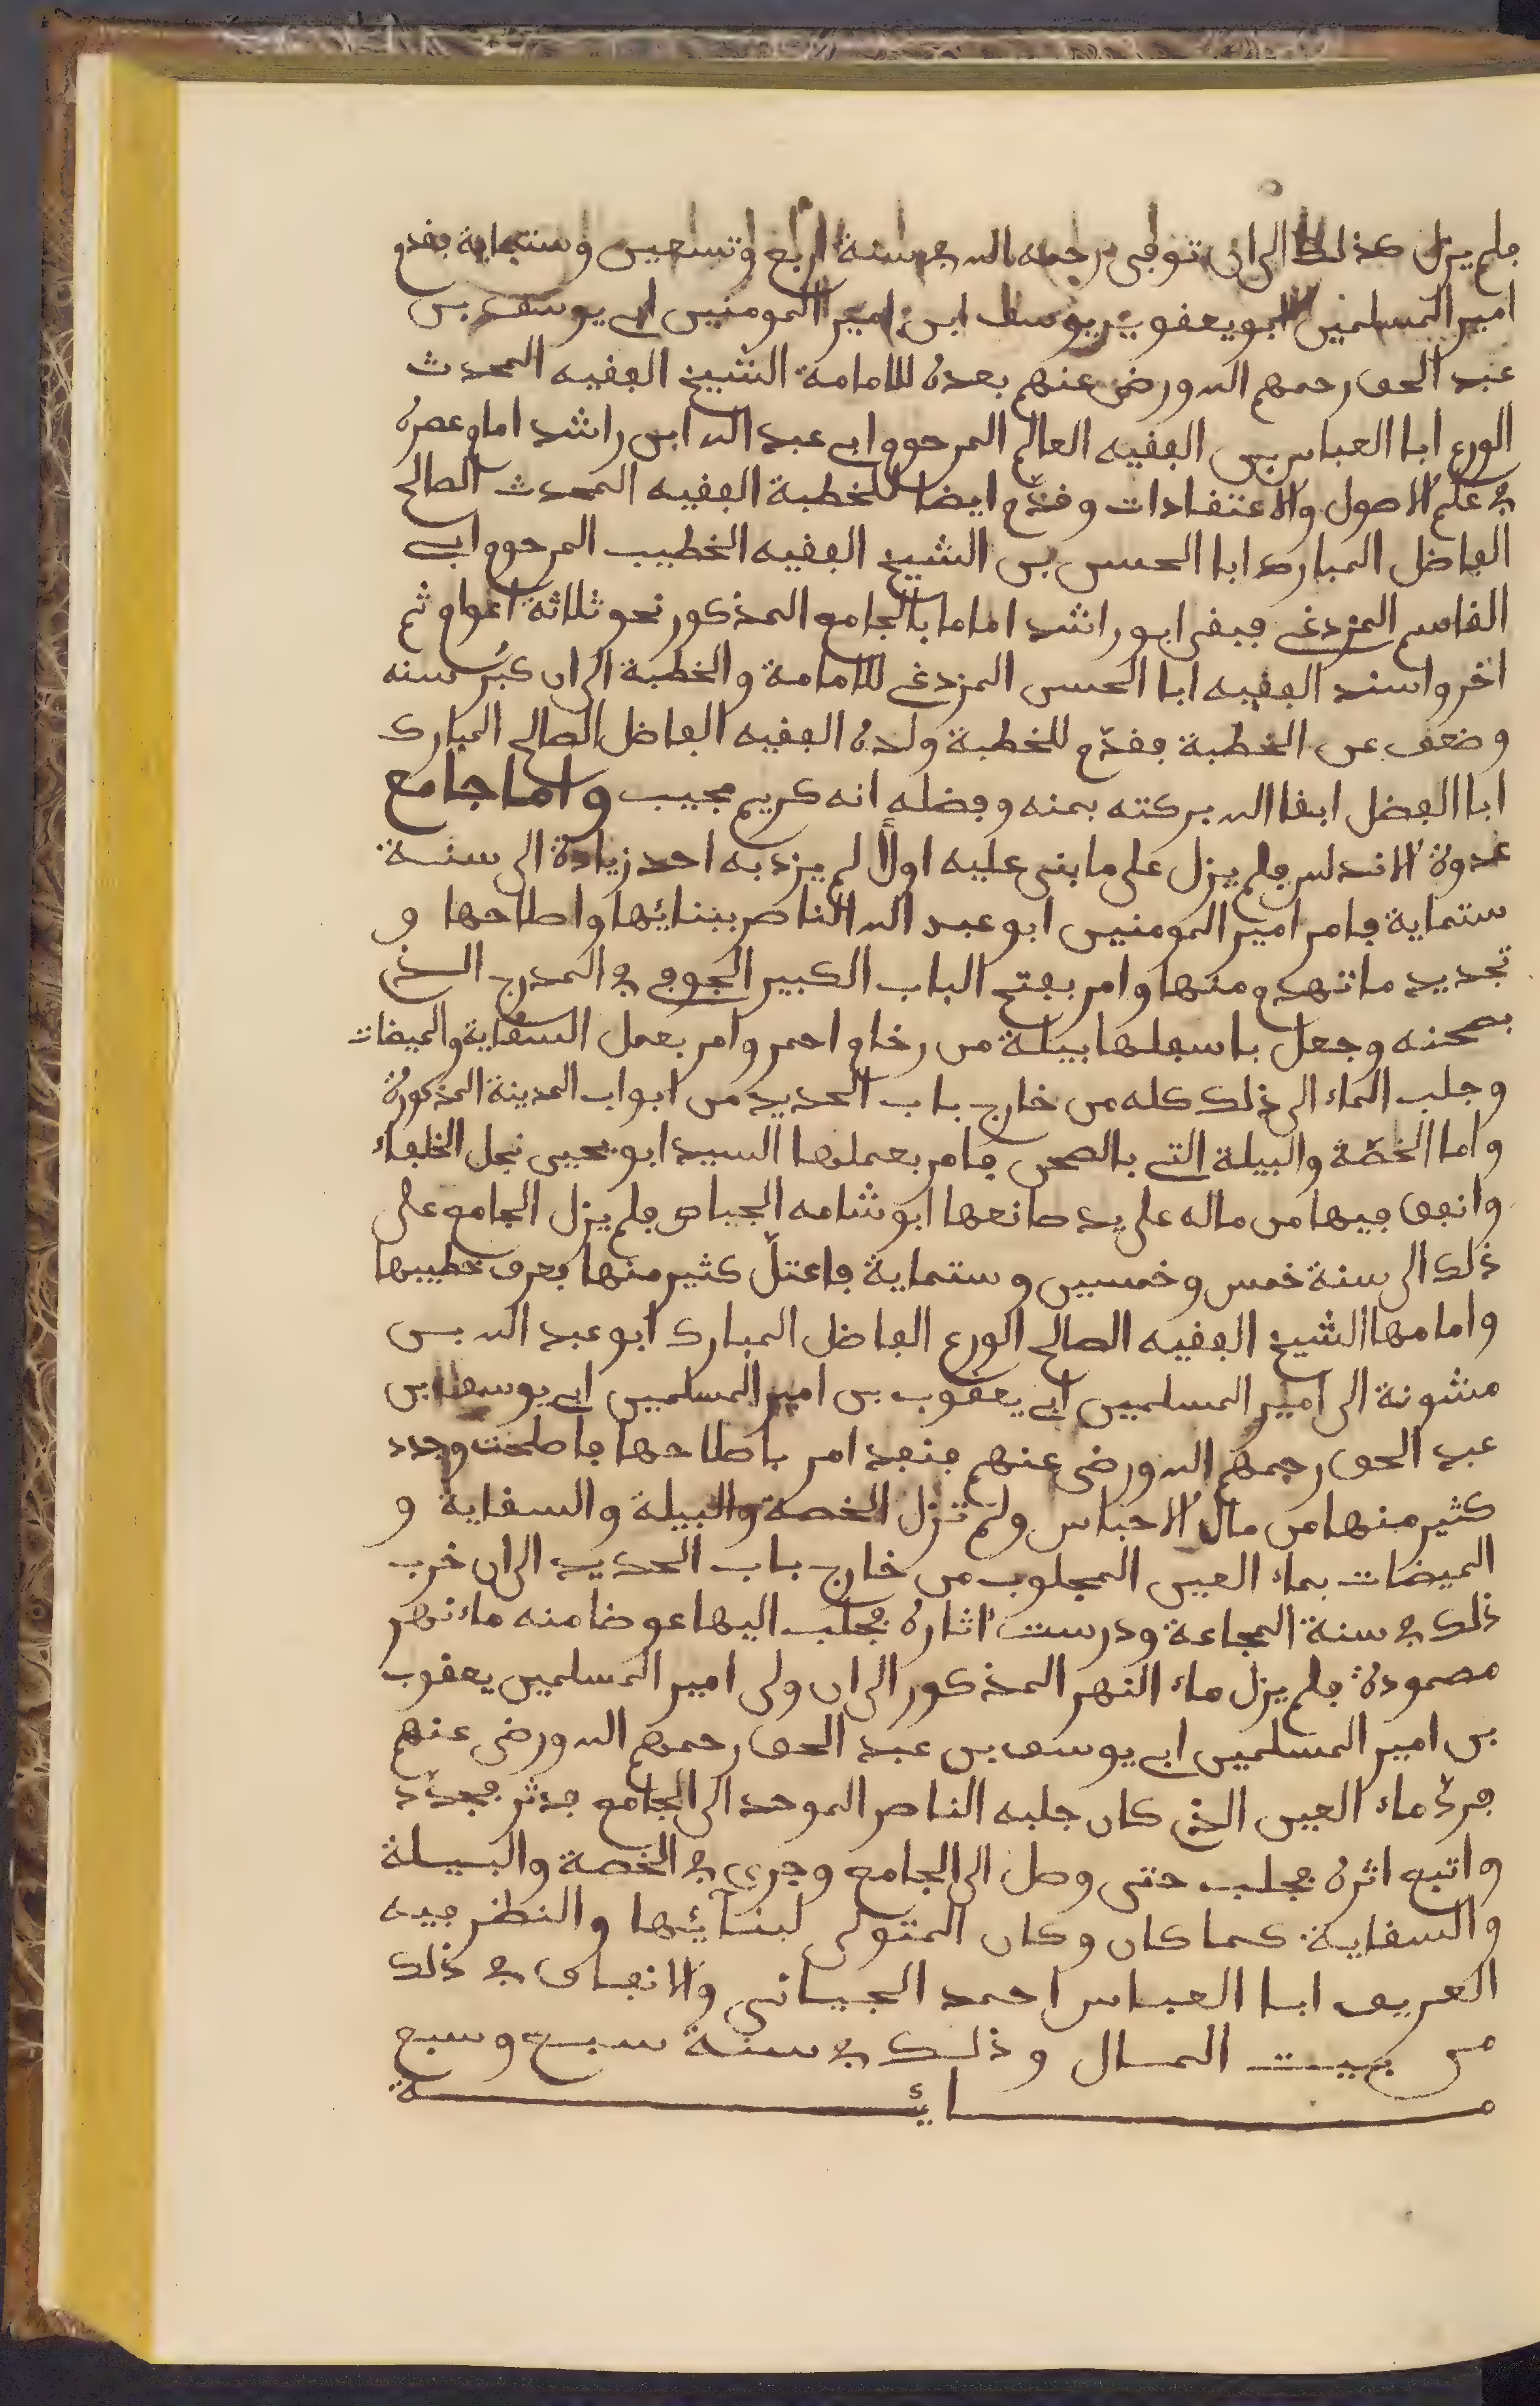 فلم يزل كذلك الى ان توفى رحمه الله في سنة اربع وتسعين وستماية فقدم
امير المسلمين ابو يعقوب يوسف ابن امير المومنين ابي يوسف بن
عبد الحق رحمهم الله ورضى عنهم بعده للامامة الشيخ الفقيه المحدث
الورع ابا العباس بن الفقيه العالم المرحوم ابي عبد الله ابن راشد امام عصره
في علم الاصول والاعتقادات وقدّم ايضا للخطبة الفقيه المحدث الصالح
الفاضل المبارك ابا الحسن بن الشيخ الفقيه الخطيب المرحوم ابي
القاسم المزدغي فبقى ابو راشد اماما بالجامع المذكور نحو ثلاثة اعوام ثم
اخر واسند الفقيه ابا الحسن المزدغي للامامة والخطبة الى ان كبُر سنه
وضعف عن الخطبة فقدّم للخطبة ولده الفقيه الفاضل الصالح المبارك
ابا الفضل ابقا الله بركته بمنه وفضله انه كريم مجيب واما جامع
عدوة الاندلس فلم يزل على ما بنى عليه اولاً لم يزد به احد زيادة الى سنة
ستماية فامر امير المومنين ابو عبد الله الناصر ببنائها واصلاحها و
تجديد ما تهدم منها وامر بفتح الباب الكبير الجوفي في المدرج الذي
بصحنه وجعل باسفلها بيلة من رخام احمر وامر بعمل السقاية والميضات
وجلب الماء الى ذلك كله من خارج باب الحديد من ابواب المدينة المذكورة
واما الخصّة والبيلة التي بالصحن فامر بعملها السيد ابو يحيى نجل الخلفاء
وانفق فيها من ماله على يد صانعها ابو شامه الجياص فلم يزل الجامع على
ذلك الى سنة خمس وخمسين وستماية فاعتلّ كثير منها فعرف خطيبها
وامامها الشيخ الفقيه الصالح الورع الفاضل المبارك ابو عبد الله بن
مشونة الى امير المسلمين ابي يعقوب بن امير المسلمين ابي يوسف بن
عبد الحق رحمهم الله ورضى عنهم فنفد امر باصلاحها فاصلحت وجدد
كثير منها من مال الاحباس ولم تزل الخصة والبيلة والسقاية و
الميضات بماء العين المجلوب من خارج باب الحديد الى ان خرب
ذلك في سنة المجاعة ودرست اثاره فجلب اليها عوضا منه ماء نهر
مصمودة فلم يزل ماء النهر المذكور الى ان ولى امير المسلمين يعقوب
بن امير المسلمين ابي يوسف بن عبد الحق رحمهم الله ورضى عنهم
فردّ ماء العين الذي كان جلبه الناصر الموحد الى الجامع فدثر فجدّد
واتبع اثره فجلب حتى وصل الى الجامع وجرى في الخصة والبيلة
والسقاية كما كان وكان المتولى لبنائها والنظر فيه
العريف ابا العباس احمد الجياني والانفاق في ذلك
من بيت المال وذلك في سنة سبع وسبع
مائة